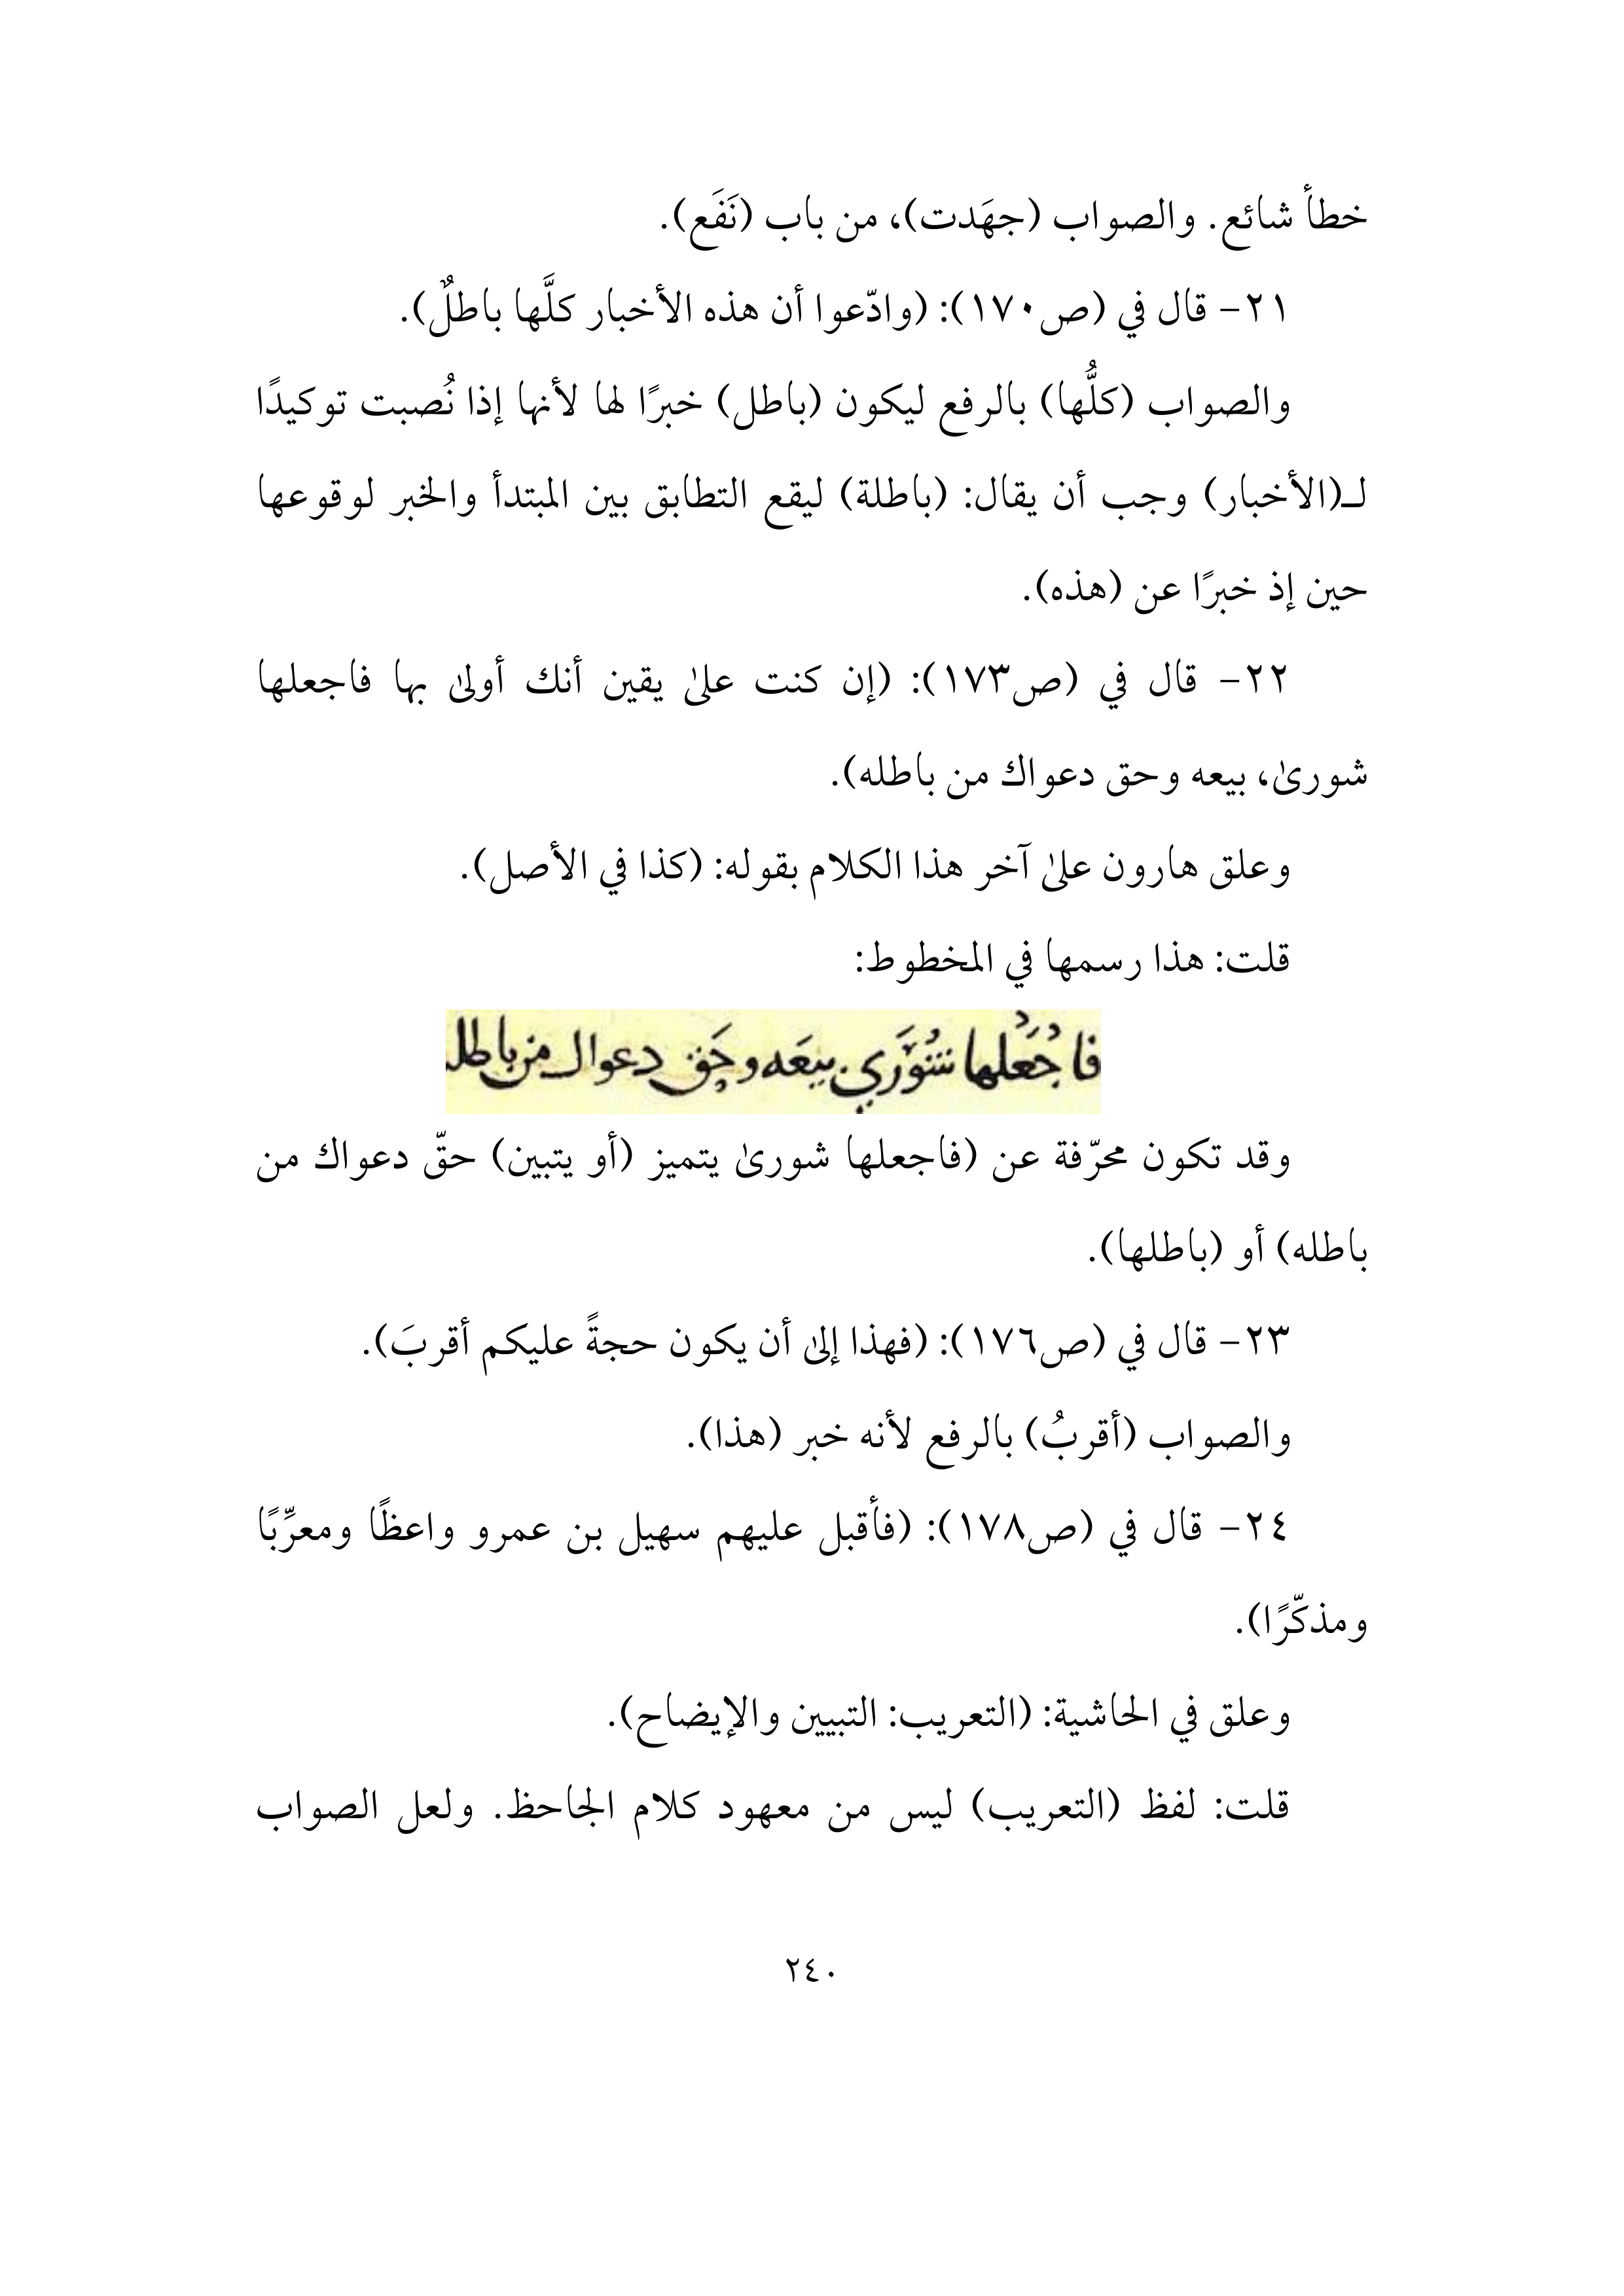 خطأ شائع. والصواب (جهَدت)، من باب (نَفَع).
٢١- قال في (ص١٧٠): (وادّعوا أن هذه الأخبار كلَّها باطلٌ).
والصواب (كلُّها) بالرفع ليكون (باطل) خبرًا لها لأنها إذا نُصبت توكيدًا
لـ(الأخبار) وجب أن يقال: (باطلة) ليقع التطابق بين المبتدأ والخبر لوقوعها
حين إذ خبرًا عن (هذه).
٢٢- قال في (ص١٧٣): (إن كنت علىٰ يقين أنك أولىٰ بها فاجعلها
شورىٰ، بيعه وحق دعواك من باطله).
وعلق هارون علىٰ آخر هذا الكلام بقوله: (كذا في الأصل).
قلت: هذا رسمها في المخطوط:
فاجعلها شورَي بيعَه وحَق دعواك من باطله
وقد تكون محرّفة عن (فاجعلها شورىٰ يتميز (أو يتبين) حقّ دعواك من
باطله) أو (باطلها).
٢٣- قال في (ص١٧٦): (فهذا إلىٰ أن يكون حجةً عليكم أقربَ).
والصواب (أقربُ) بالرفع لأنه خبر (هذا).
٢٤- قال في (ص١٧٨): (فأقبل عليهم سهيل بن عمرو واعظًا ومعرِّبًا
ومذكّرًا).
وعلق في الحاشية: (التعريب: التبيين والإيضاح).
قلت: لفظ (التعريب) ليس من معهود كلام الجاحظ. ولعل الصواب
٢٤٠